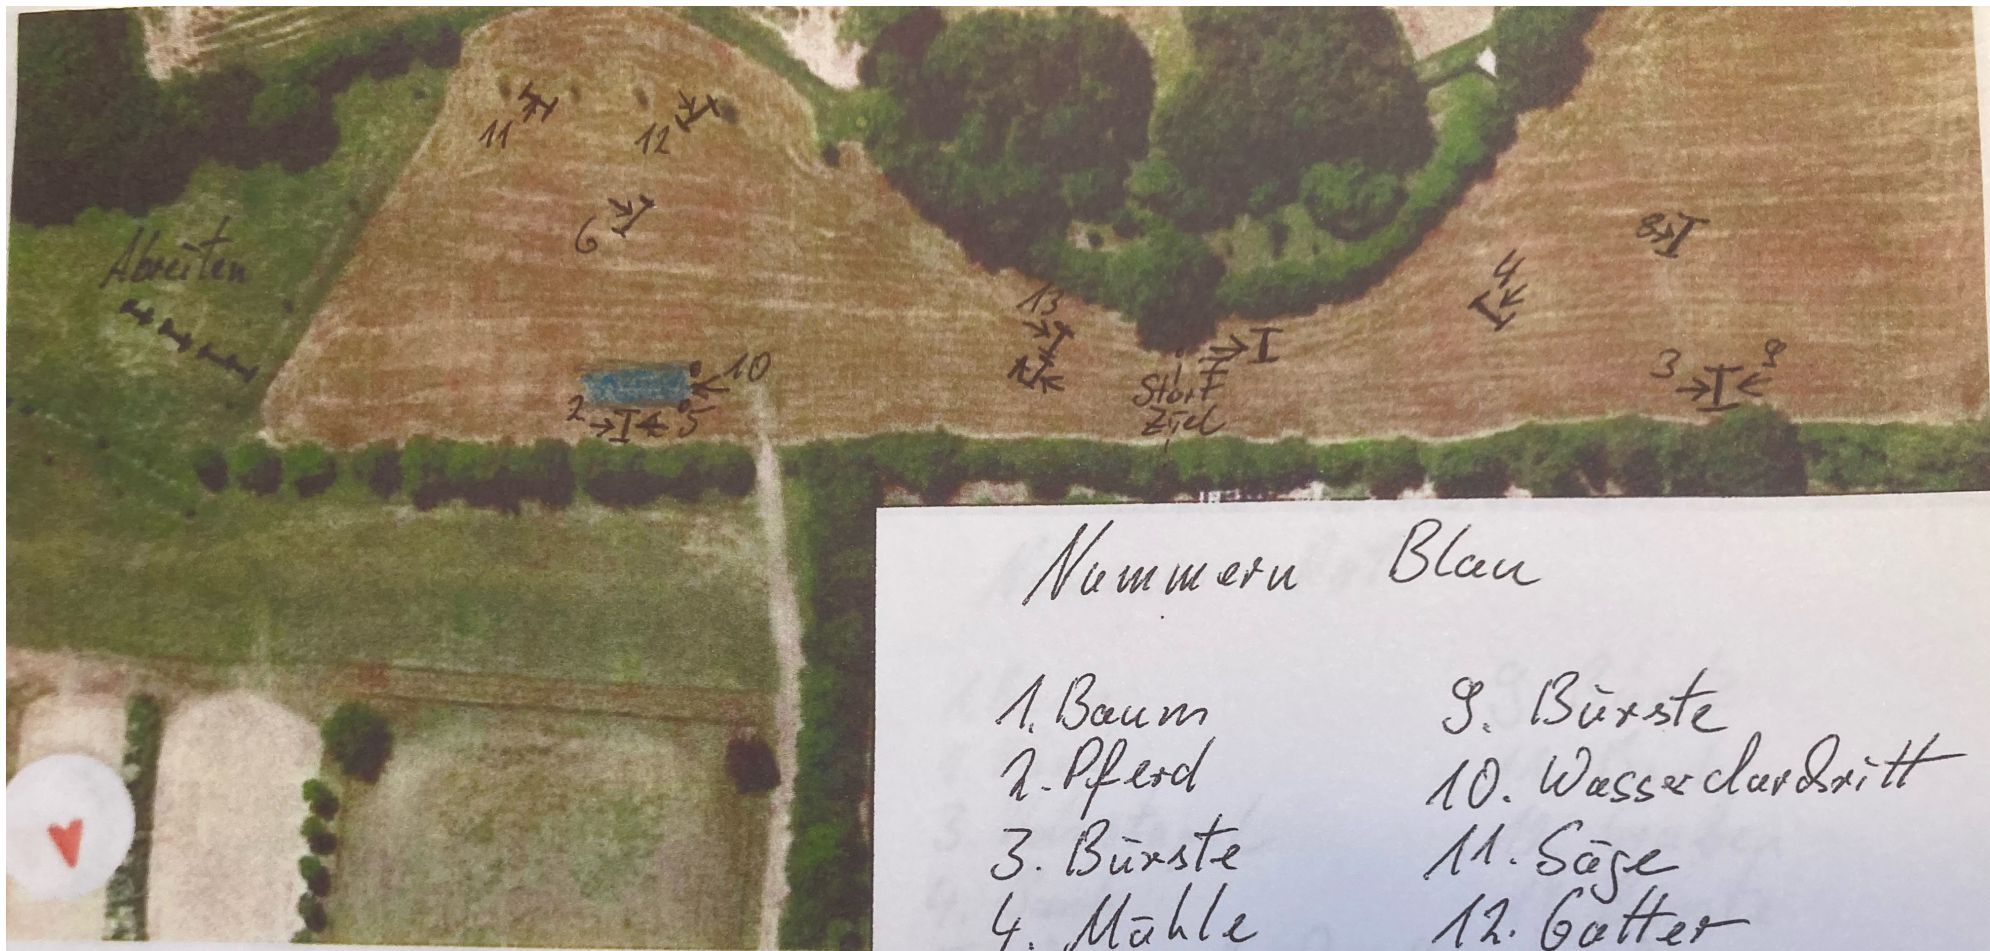 11
12
6
Abreiten
8
4
13
1
10
3
9
Start
Ziel
2
5
Nummern Blau
1. Baum
2. Pferd
3. Bürste
4. Mühle
9. Bürste
10. Wasserdurchritt
11. Säge
12. Gatter